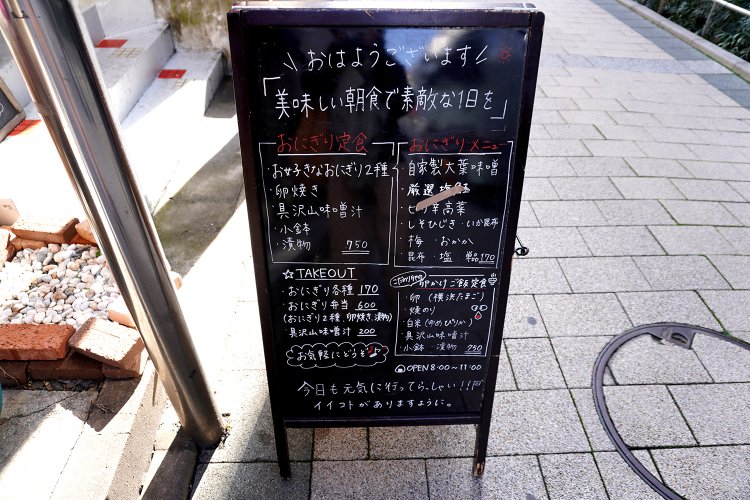 おはようございます
「美味しい朝食で素敵な1日を」
おにぎり定食
・お好きなおにぎり2種
・卵焼き
・具沢山味噌汁
・小鉢
・漬物 750
☆TAKEOUT
・おにぎり各種 170
・おにぎり弁当 600
(おにぎり2種、卵焼き、漬物)
・具沢山味噌汁 200
お気軽にどうぞ♪
おにぎりメニュー
・自家製大葉味噌
・厳選塩
辛高菜
・しそひじき・いか昆布
・梅 ・おかか
・昆布 ・塩 単品170
卵かけご飯定食
・卵(横浜たまご)
・焼のり
・白米(ゆめぴりか)
・具沢山味噌汁
・小鉢・漬物 750
OPEN 8:00~11:00
今日も元気に行ってらっしゃい!!
イイコトがありますように。